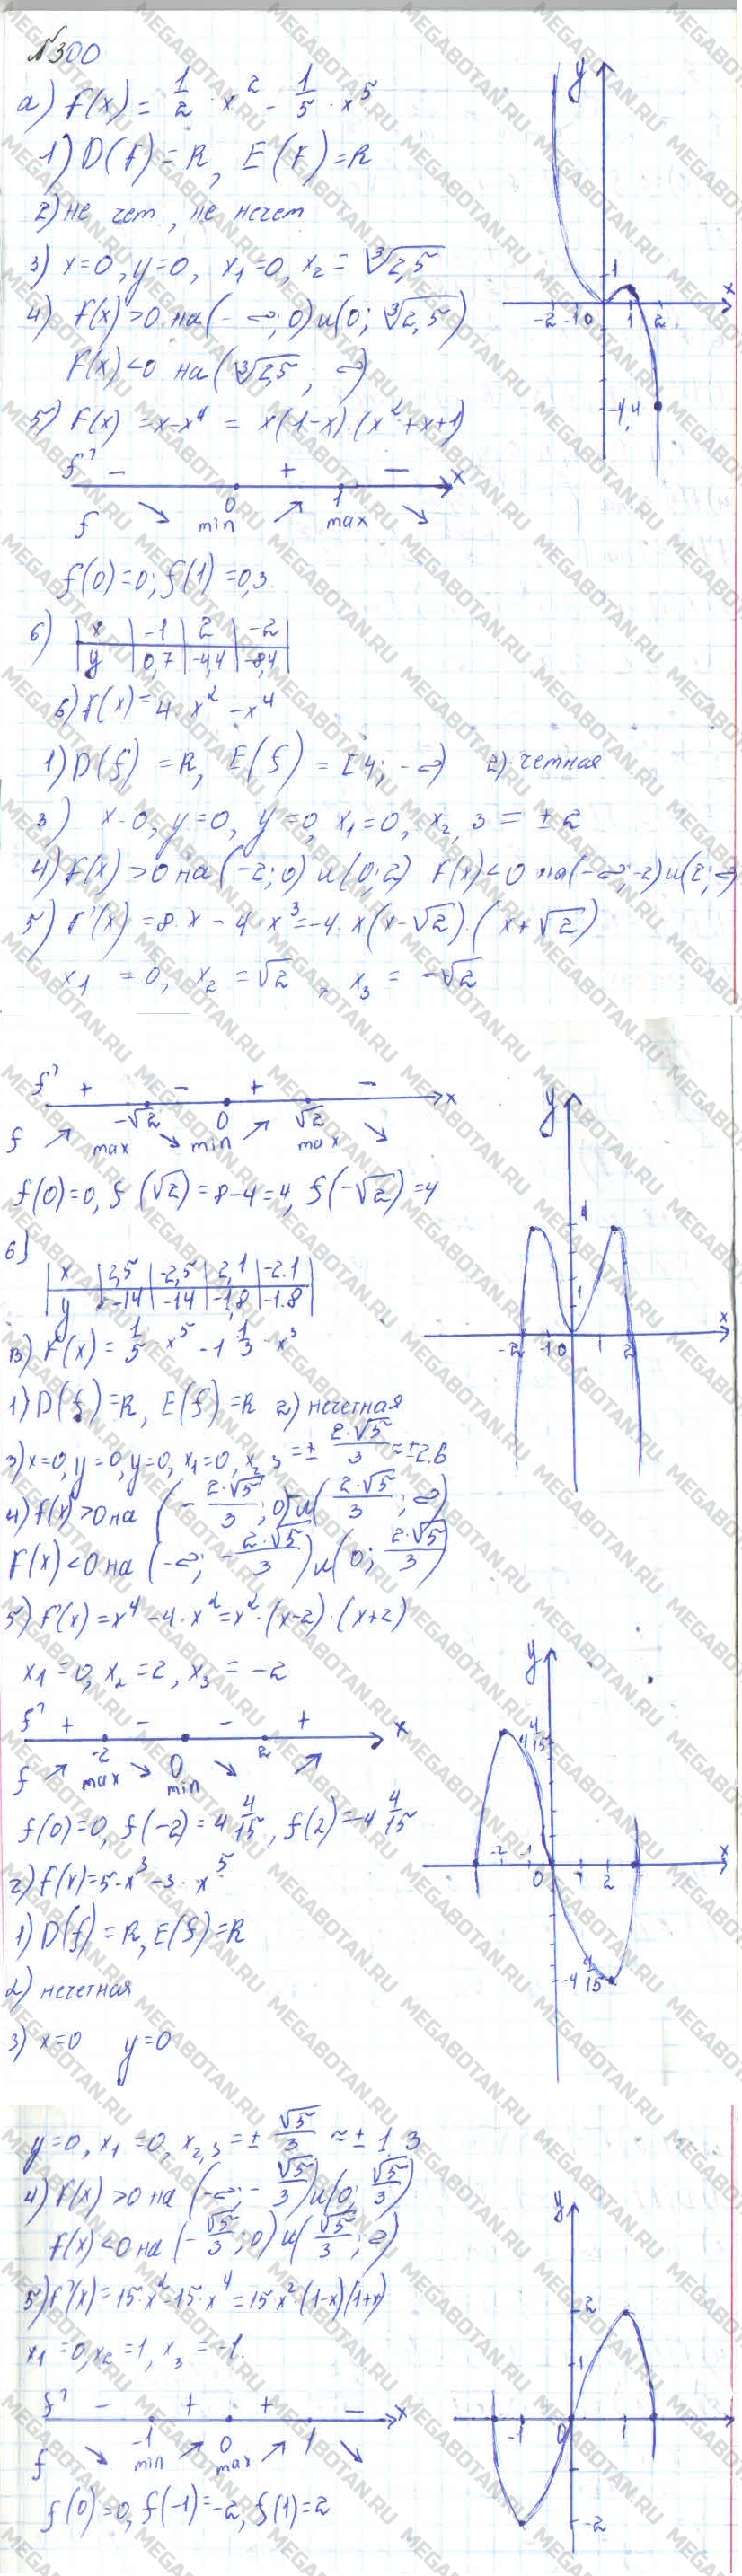 №300
а) f(x) = 1/2 · x² - 1/5 · x⁵
1) D(f) = R, E(f) = R
2) не чет, не нечет
3) x=0, y=0, x₁=0, x₂ = ∛2,5
4) f(x)>0 на (-∞; 0) и (0; ∛2,5)
f(x)<0 на (∛2,5; ∞)
5) f(x) = x-x⁴ = x(1-x)·(x²+x+1)
f' - + - x
0 1
f ↘ min ↗ max ↘
f(0)=0; f(1)=0,3
y
1
x
-2 -1 0 1 2
-4,4
6) x | -1 | 2 | -2
y | 0,7 | -4,4 | -8,4
б) f(x) = 4 · x² - x⁴
1) D(f) = R, E(f) = [4; -∞) 2) четная
3) x=0, y=0, y=0, x₁=0, x₂,₃ = ±2
4) f(x)>0 на (-2; 0) и (0; 2) f(x)<0 на (-∞; -2) и (2; ∞)
5) f'(x) = 8·x - 4·x³ = -4·x(x-√2)·(x+√2)
x₁ = 0, x₂ = √2, x₃ = -√2
f' + - + - x
-√2 0 √2
f ↗ max ↘ min ↗ max ↘
f(0)=0, f(√2)=8-4=4, f(-√2)=4
6)
x | 2,5 | -2,5 | 2,1 | -2.1
y | -14 | -14 | -1,8 | -1.8
y
4
1
x
-2 -1 0 1 2
в) f(x) = 1/5 · x⁵ - 1 1/3 · x³
1) D(f)=R, E(f)=R 2) нечетная
3) x=0, y=0, y=0, x₁=0, x₂,₃ = ± 2·√5/3 ≈ ±2.6
4) f(x)>0 на (- 2·√5/3; 0) и (2·√5/3; ∞)
f(x)<0 на (-∞; - 2·√5/3) и (0; 2·√5/3)
5) f'(x) = x⁴ - 4·x² = x²·(x-2)·(x+2)
x₁=0, x₂=2, x₃ = -2
f' + - - + x
-2 0 2
f ↗ max ↘ min ↘ ↗
f(0)=0, f(-2)=4 4/15, f(2)=-4 4/15
y
4 4/15
x
-2 -1 0 1 2
-4 4/15
г) f(x)=5·x³ - 3·x⁵
1) D(f)=R, E(f)=R
2) нечетная
3) x=0 y=0
y=0, x₁=0, x₂,₃ = ± √5/3 ≈ ± 1,3
4) f(x)>0 на (-∞; - √5/3) и (0; √5/3)
f(x)<0 на (- √5/3; 0) и (√5/3; ∞)
5) f'(x)=15·x²-15·x⁴=15x²·(1-x)(1+x)
x₁=0, x₂=1, x₃ = -1.
f' - + + - x
-1 0 1
f ↘ min ↗ max ↗ ↘
f(0)=0, f(-1)=-2, f(1)=2
y
2
1
-1 0 1
-2
MEGABOTAN.RU